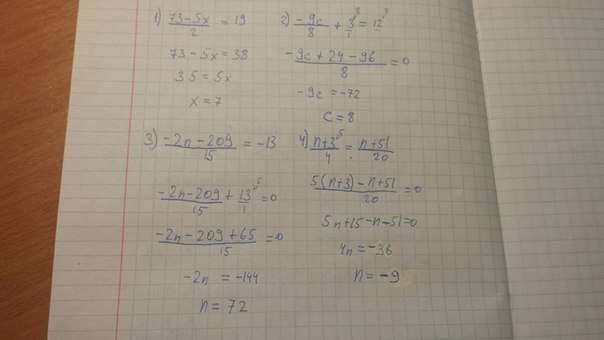 1) (73-5x)/2 = 19
73-5x = 38
35 = 5x
x = 7
2) -9c/8 + 3/1 \8 = 12 \8
(-9c+24-96)/8 = 0
-9c = -72
C = 8
3) (-2n-209)/15 = -13
(-2n-209)/15 + 13/1 \5 = 0
(-2n-209+65)/15 = 0
-2n = -144
n = 72
4) (n+3)/4 \5 = (n+51)/20
(5(n+3)-n+51)/20 = 0
5n+15-n-51=0
4n = -36
n = -9